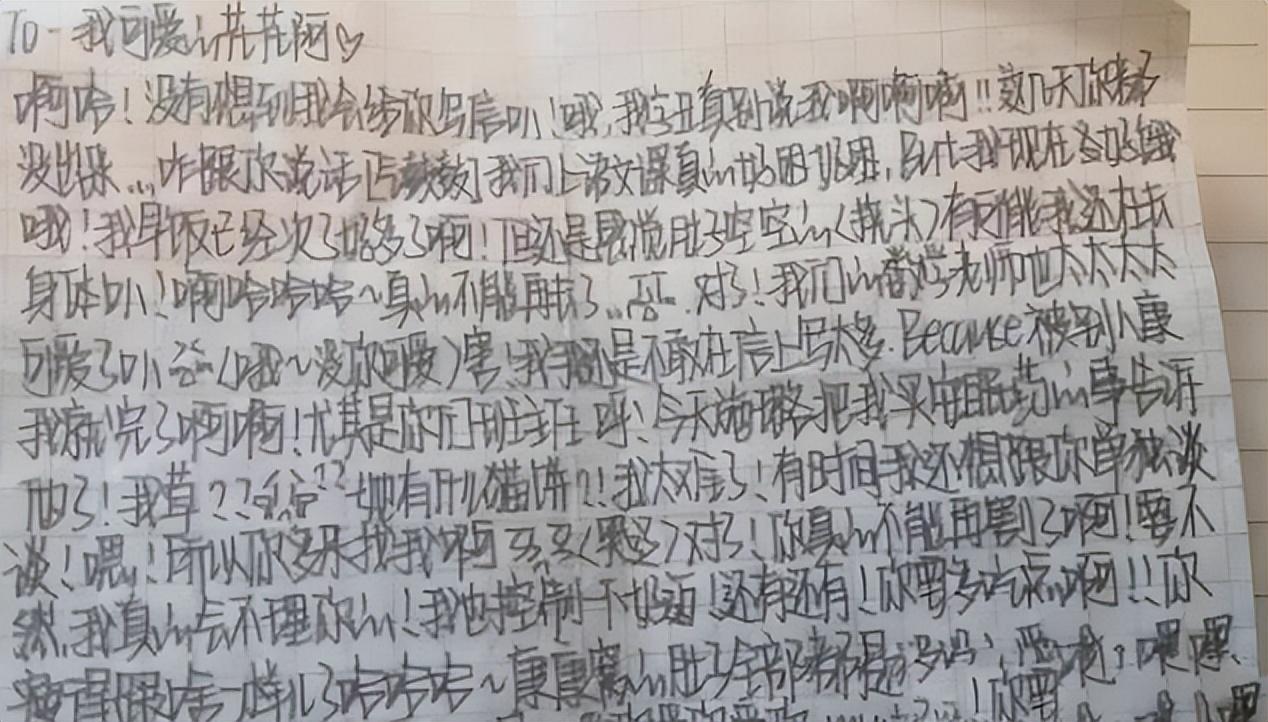 To-我可爱的花花阿♡
啊哈！没有想到我会给你写信叭！哦，我字丑真别说我啊啊啊!!这几天你都
没出来...咋跟你说话 我们上语文课真的好困好困，現在好饿
哦！我早饭已经次了好多了啊！但还是感觉肚子空空的(挠头)有可能我还在长
身体叭！啊哈哈哈～真的不能再长了..对了！我们的老师也太太太太
可爱了叭(哦～没你可爱)害！我是不敢在信上写太多.Because被别小康
我就完了啊啊！尤其是你们班主任呀！今天施璐把我买安眠药的事告诉
他了！我草？？？？她有什么猫饼?!我太难了！有时间我还想跟你单独谈
谈！嗯！所以你多来找我啊 对了！你真的不能再割了啊！要不
然，我真的会不理你的！我也控制不好！还有还有！你要多吃点啊!!你
瘦得跟啥一样儿了哈哈哈～康康的肚子全部都是 嘿嘿
你要